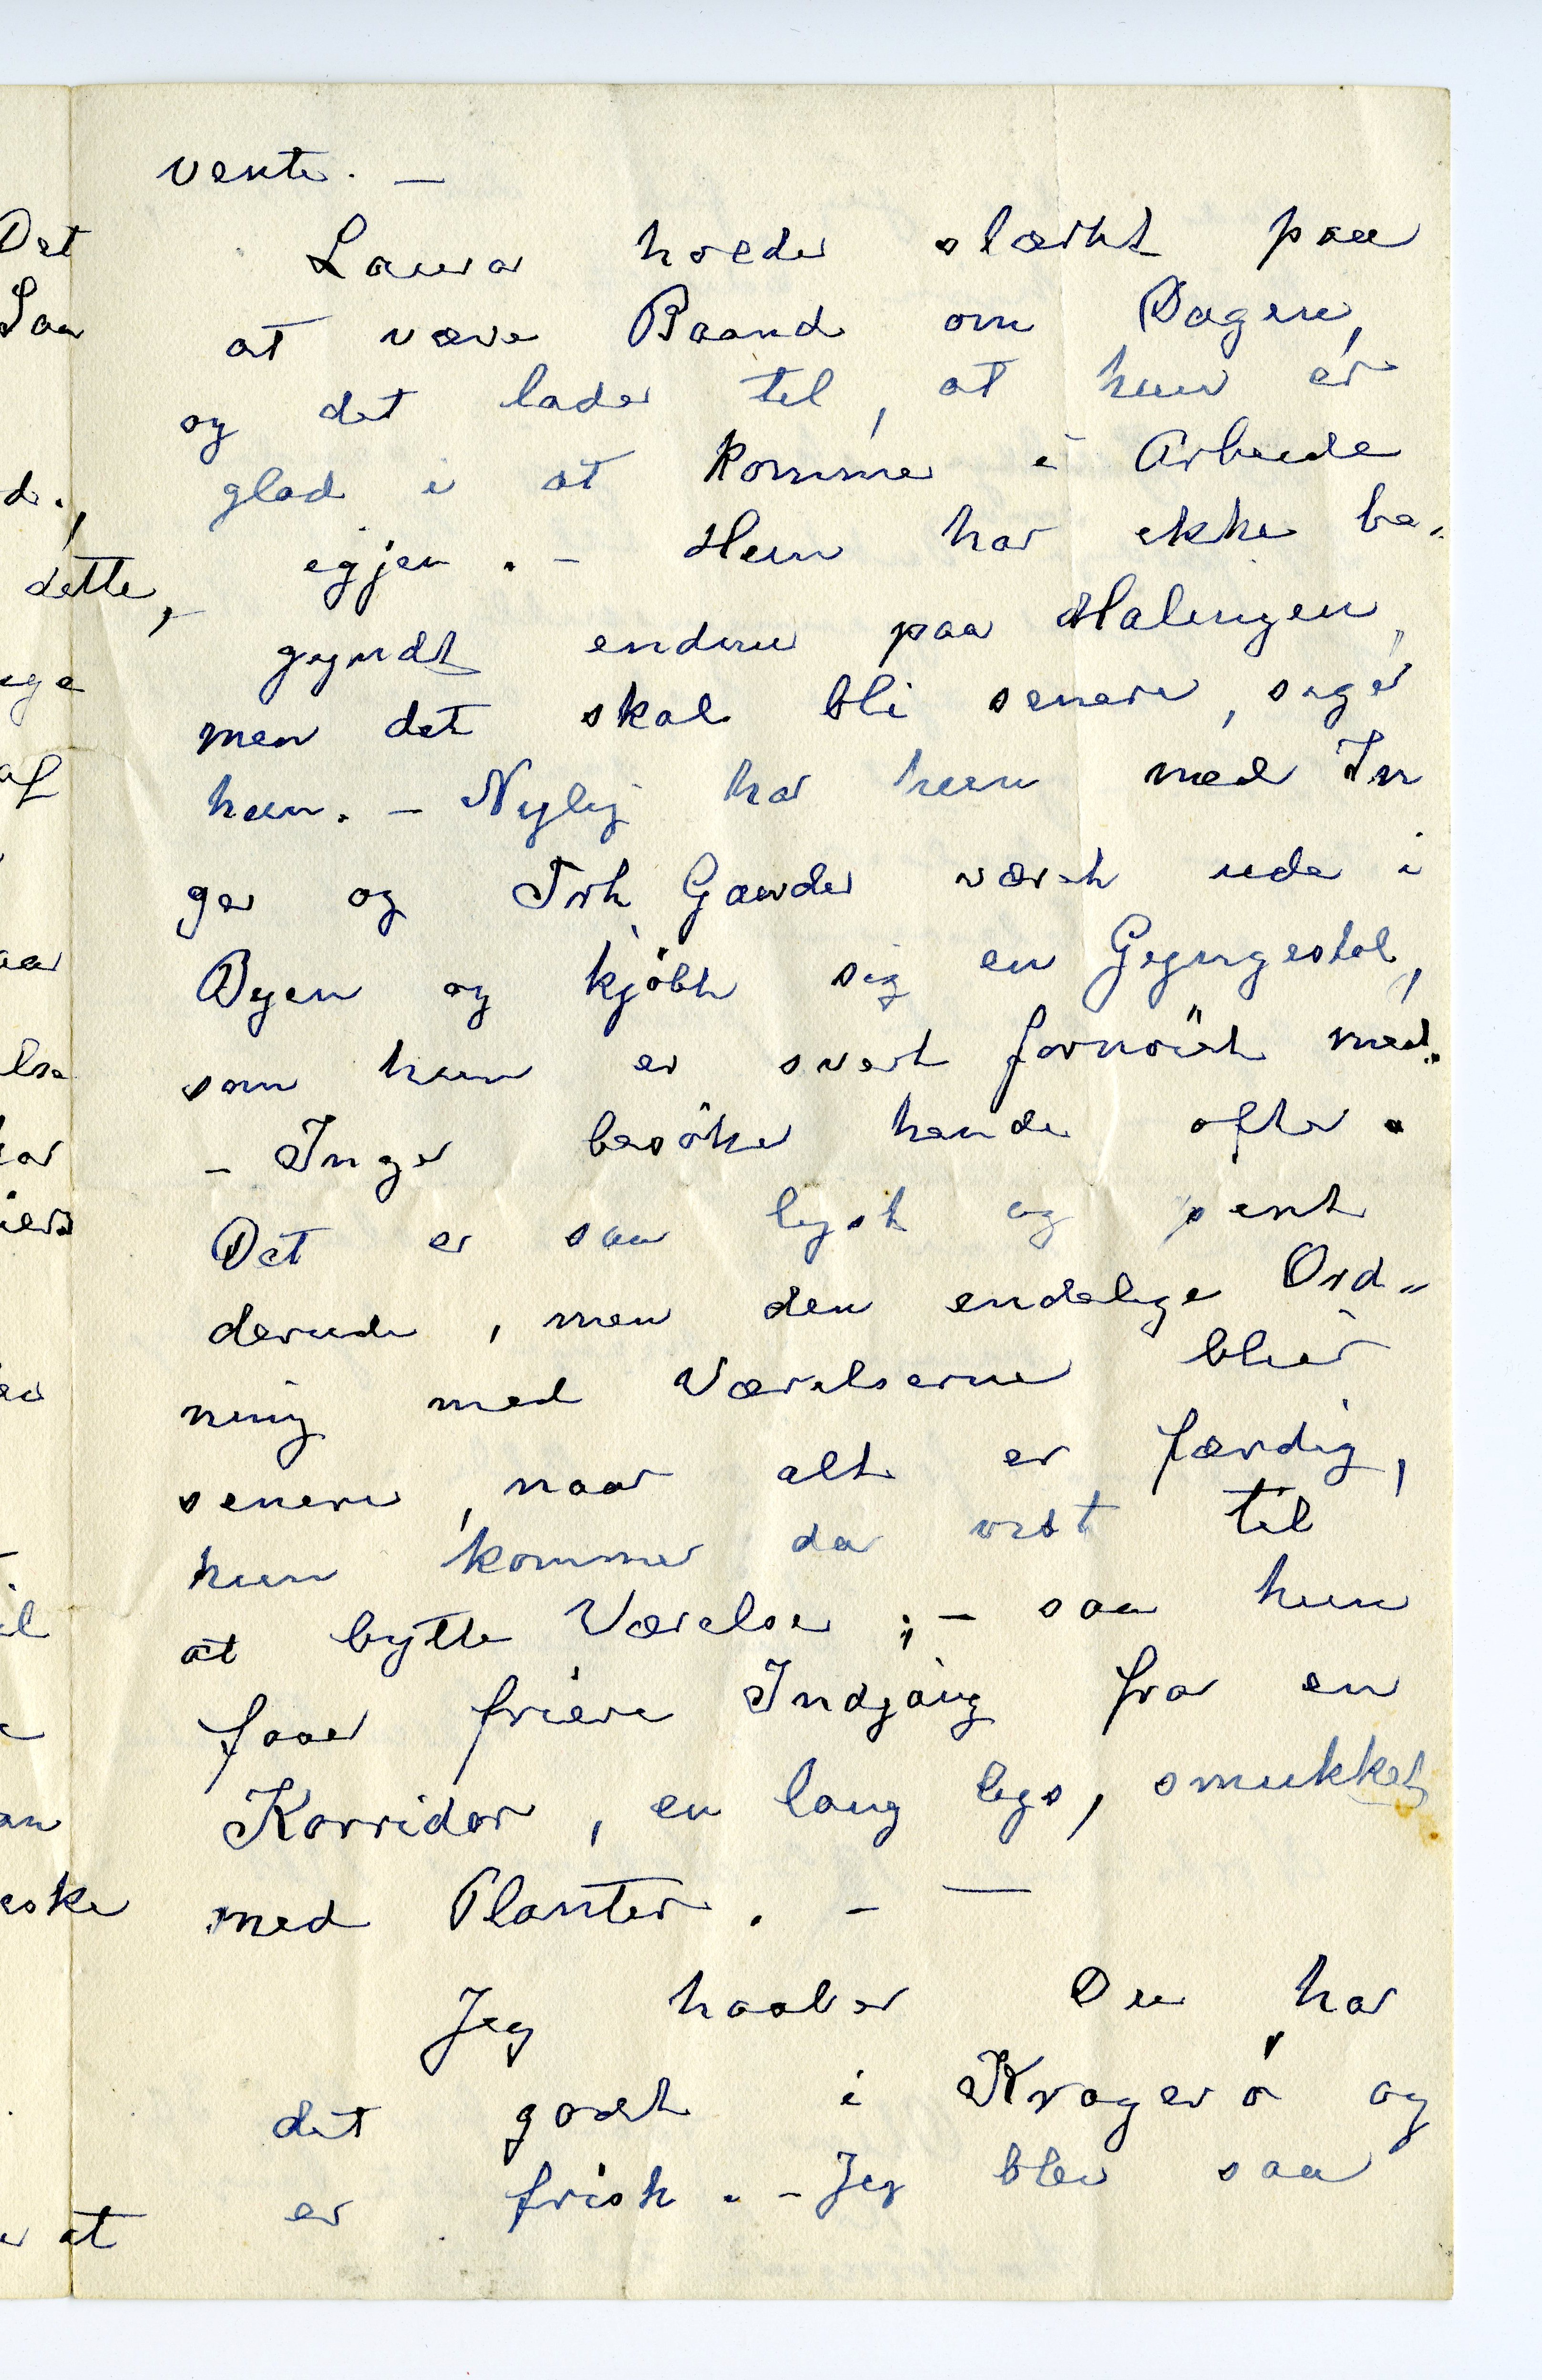 vente. —
Laura holder stærkt paa
at væve Baand om Dagen,
og det lader til, at hun er
glad i at komme i Arbeide
igjen. – Hun har ikke be-
gyndt endnu paa Malingen,
men det skal bli senere, siger
hun. – Nylig har hun med In
ger og Frk, Gauder været ude i
Byen og kjöbt sig en Gyngestol,
som hun er svert fornöiet med.
– Inger besöker hende ofte.
Det er saa lyst og pent
derude, men den endelige Ord„
ning med Værelserne blier
senere, naar alt er færdig,
hun kommer da vist til
at bytte Værelse; – saa hun
faar friere Indgang fra en
Korridor, en lang lys, smukket
med Planter. – —
Jeg haaber Du har
det godt i Kragerö og
er frisk. – Jeg blev saa
Det
Saa
d.,
dette,
ige
af
aa
lse
iers
il
an
eske
at